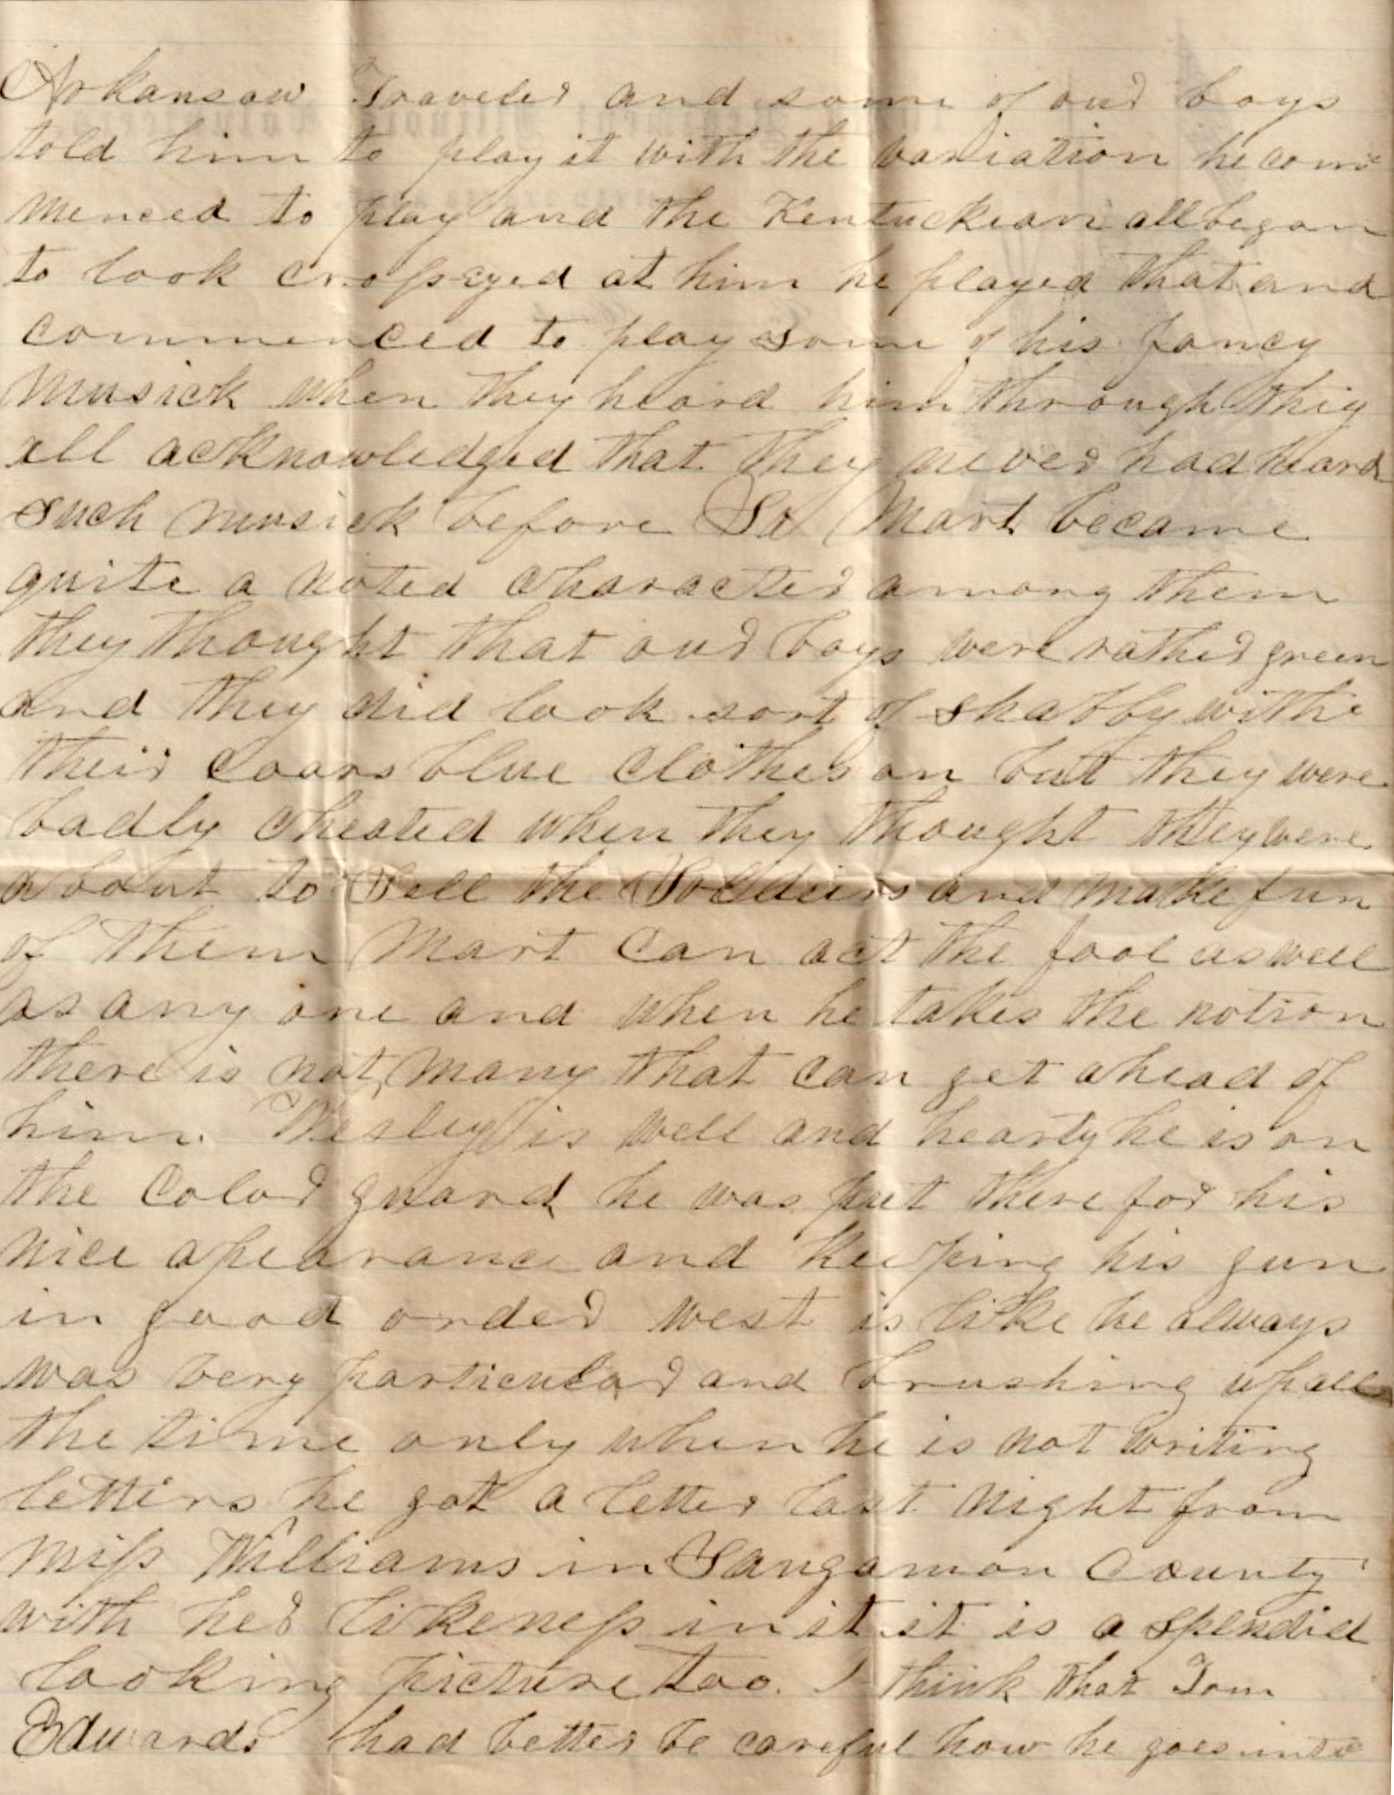 Arkansaw Traveler and some of our boys
told him to play it with the variation he com
menced to play and the Kentuckian all began
to look crosseyed at him he played that and
commenced to play some of his fancy
musick when they heard him through they
all acknowledged that they never had heard
such musick before So Mart became
quite a noted character among them
they thought that our boys were rather green
and they did look sort of shabby with
their coars blue clothes on but they were
badly cheated when they thought they were
about to Sell the Soldiers and make fun
of them Mart can act the fool as well
as any one and when he takes the notion
there is not many that can get ahead of
him. Wesley is well and hearty he is on
the color guard he was put there for his
nice apearance and keeping his gun
in good order west is like he always
was very particular and brushing up all
the time only when he is not writing
letters he got a letter last night from
Miss Williams in Sangamon County
with her likeness in it it is a splendid
looking picture too. I think that Tom
Edwards had better be careful how he goes into